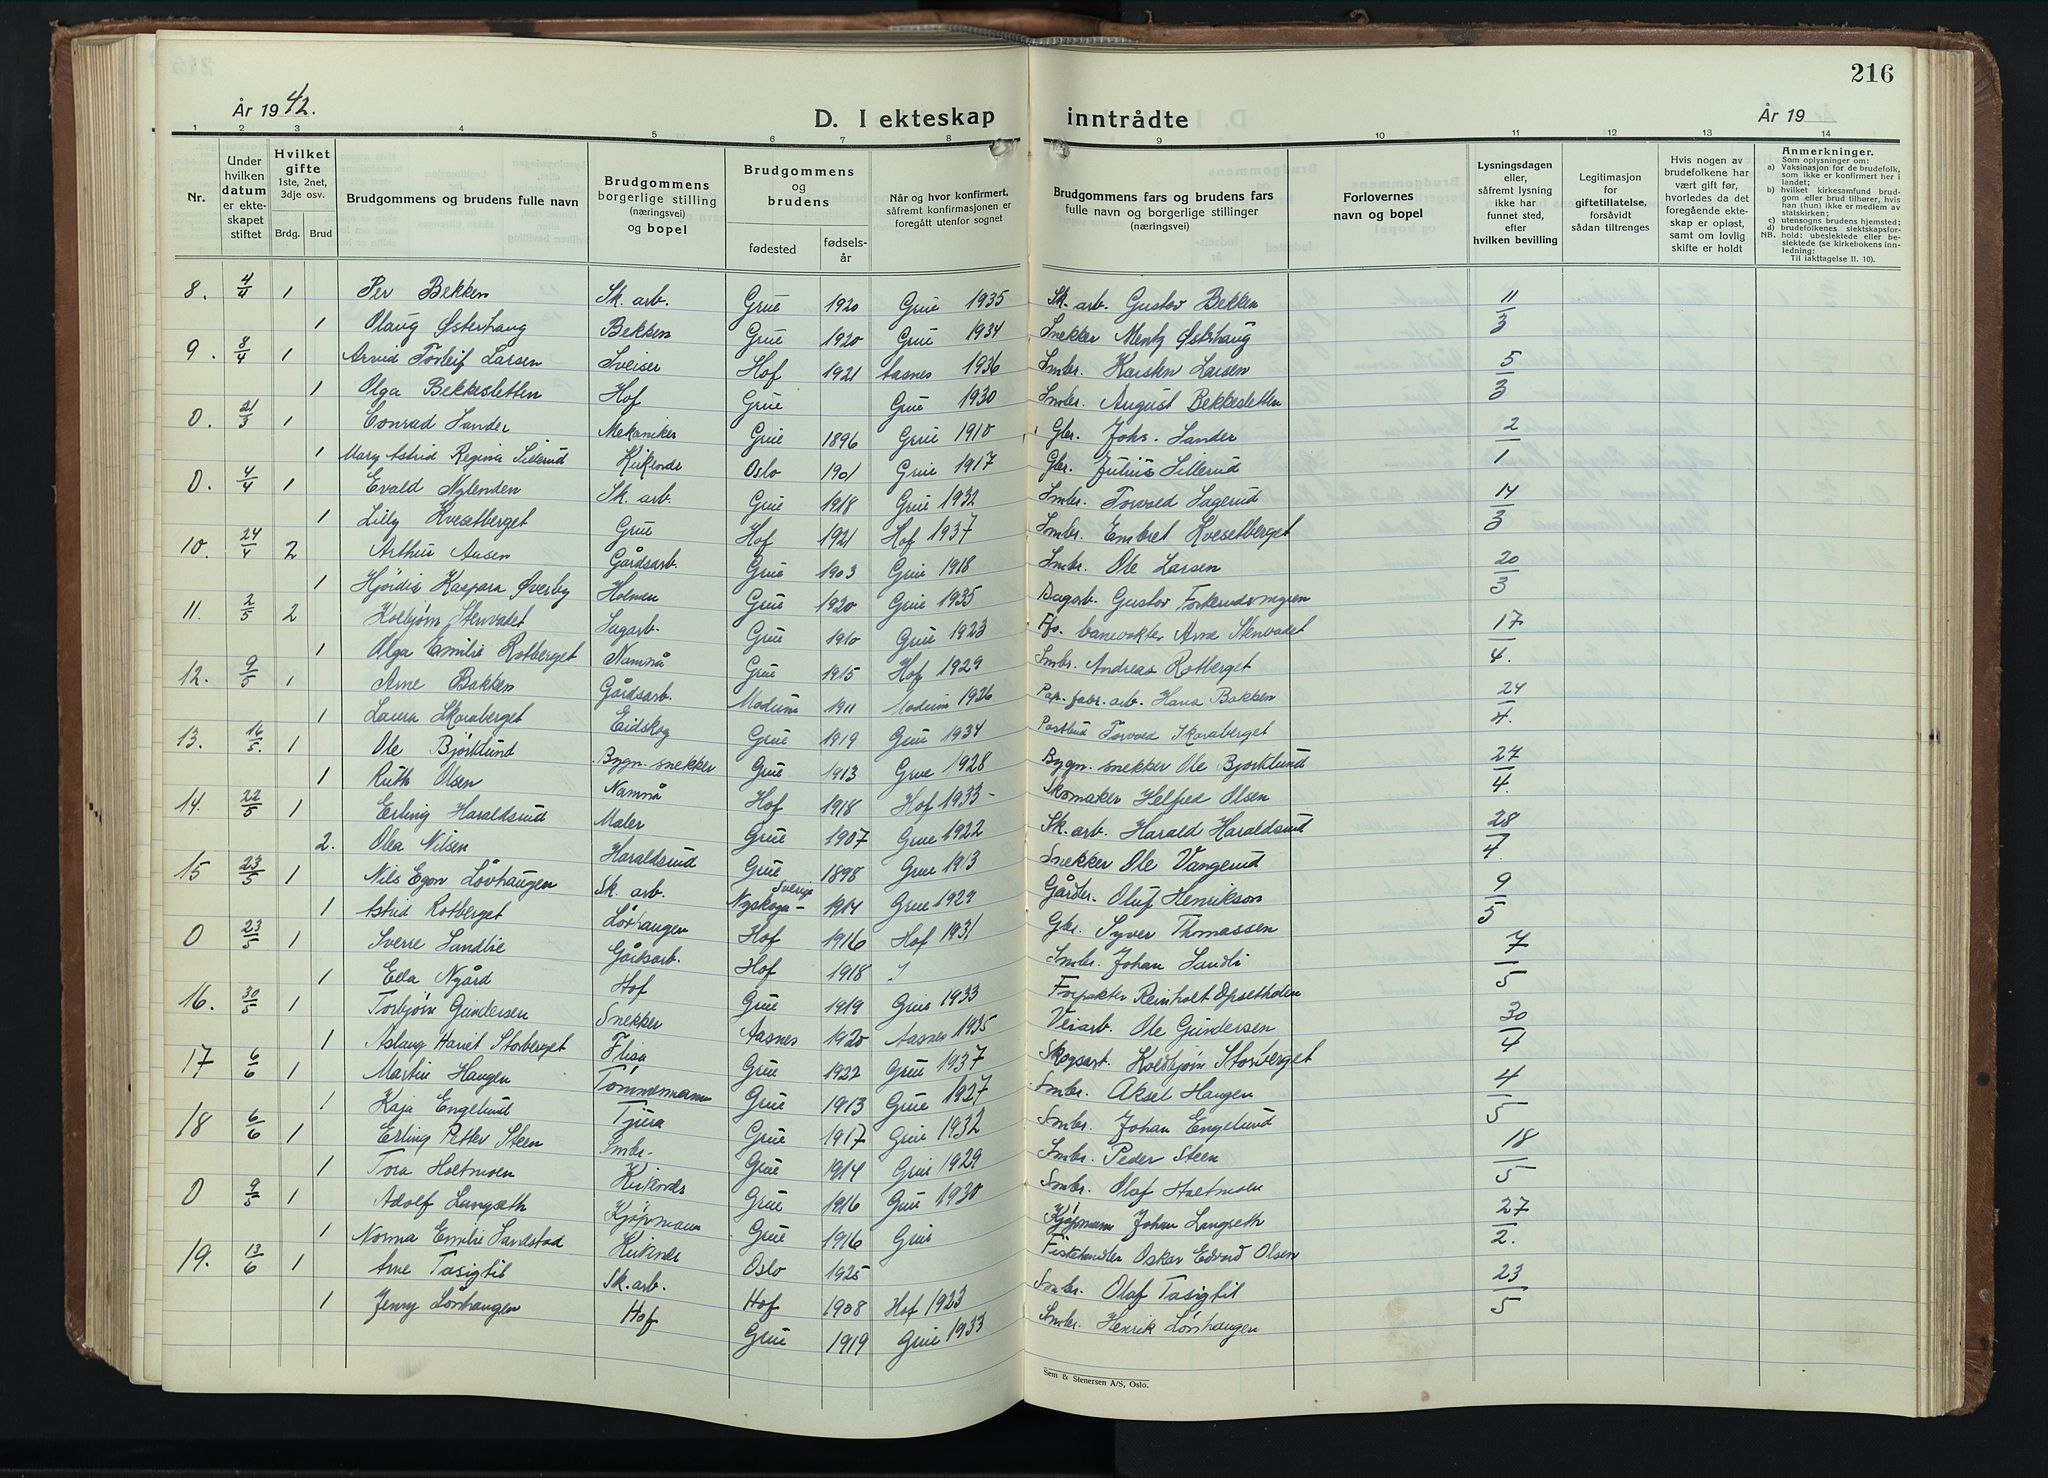 216
År 1942.
D. I ekteskap inntrådte
År 19
1 2 3 4 5 6 7 8 9 10 11 12 13 14
Nr.
Under hvilken datum er ekteskapet stiftet
Hvilket gifte 1ste, 2net, 3dje osv.
Brdg. Brud
Brudgommens og brudens fulle navn
Brudgommens borgerlige stilling (næringsvei) og bopel
Brudgommens og brudens
fødested
fødselsår
Når og hvor konfirmert, såfremt konfirmasjonen er foregått utenfor sognet
Brudgommens fars og brudens fars fulle navn og borgerlige stillinger (næringsvei)
Forlovernes navn og bopel
Lysningsdagen eller, såfremt lysning ikke har funnet sted, efter hvilken bevilling
Legitimasjon for giftetillatelse, forsåvidt sådan tiltrenges
Hvis nogen av brudefolkene har vært gift før, hvorledes da det foregående ekteskap er opløst, samt om lovlig skifte er holdt
Anmerkninger.
Som oplysninger om:
a) Vaksinasjon for de brudefolk, som ikke er konfirmert her i landet;
b) hvilket kirkesamfund brudgom eller brud tilhører, hvis han (hun) ikke er medlem av statskirken;
c) utensogns brudens hjemsted;
d) brudefolkenes slektskapsforhold: ubeslektede eller beslektede (se kirkebokens innledning:
NB.
Til iakttagelse II. 10).
8. 4/4 1 Per Bekken Sk. arb. Grue 1920 Grue 1935 Sk. arb. Gustav Bekken 11/3
1 Olaug Østerhaug Bekken Grue 1920 Grue 1934 Snekker Mentz Østerhaug
9. 8/4 1 Arvid Torleif Larsen Sveiser Hof 1921 Aasnes 1936 Smbr. Karsten Larsen 5/3
1 Olga Bekkesletten Hof Grue Grue 1930 Smbr. August Bekkesletten
0. 21/3 1 Conrad Sander Mekaniker Grue 1896 Grue 1910 Gbr. Johs. Sander 2/1
1 Mary Astrid Regina Sillerud Oslo 1901 Grue 1917 Gbr. Julius Sillerud
0. 4/4 1 Evald Nylenden Sk. arb. Grue 1918 Grue 1932 Smbr. Torvald Sagerud 14/3
1 Lilly Kvesetberget Grue Hof 1921 Hof 1937 Smbr. Embret Kvesetberget
10. 24/4 2 Arthur Aasen Gårdsarb. Grue 1903 Grue 1918 Smbr. Ole Larsen 20/3
1 Hjördis Kaspara Øverby Holmen Grue 1920 Grue 1935 Gustav
11. 2/5 2 Kolbjørn Stenvadet Sagarb. Grue 1910 Grue 1923 banevokter Arne Stenvadet 17/4.
1 Olga Emilie Rotberget Namnå Grue 1915 Hof 1929 Smbr. Andreas Rotberget
12. 9/5 1 Arne Bakken Gårdsarb. Modum 1911 Modum 1926 Pap. fabr. arb. Hans Bakken 24/4.
1 Laura Skaraberget Eidskog Grue 1919 Grue 1934 Postbud Torvald Skaraberget
13. 16/5. 1 Ole Bjørklund Bygn. snekker Grue 1913 Grue 1928 Bygn. snekker Ole Bjørklund 27/4.
1 Ruth Olsen Namnå Hof 1918 Hof 1933 Skomaker Helfred Olsen
14. 22/5 1 Erling Haraldsrud Maler Grue 1907 Grue 1922 Sk. arb. Harald Haraldsrud 28/4.
2. Olea Nilsen Haraldsrud Grue 1898 Grue 1913 Snekker Ole Vangerud
15 23/5 1 Nils Egon Lövhaugen Sk. arb. Nyskoga Sverige 1914 Grue 1929 Gårdbr. Oluf Henrikson 9/5
1 Astrid Rotberget Lövhaugen Hof 1916 Hof 1931 Gbr. Syver Thomassen
0 23/5 1 Sverre Sandlie Gårdsarb. Hof 1918 ? Smbr. Johan Sandli 7/5
1 Ella Nygård Hof Grue 1919 Grue 1933 Forpakter Reinholt Opsetholen
16. 30/5 1 Torbjörn Gundersen Snekker Aasnes 1920 Aasnes 1935 Veiarb. Ole Gundersen 30/4
1 Aslaug Harriet Storberget Flisa Grue 1922 Grue 1937 Skogsarb. Koldbjørn Storberget
17 6/6 1 Martin Haugen Tömmermann Grue 1913 Grue 1927 Smbr. Aksel Haugen 4/5
1 Kaja Engelund Tjura Grue 1917 Grue 1932 Smbr. Johan Engelund
18 6/6 1 Erling Petter Steen Smbr. Grue 1914 Grue 1929 Smbr. Peder Steen 18/5
1 Tora Holtmoen Kirkenær Grue 1916 Grue 1930 Smbr. Olaf Holtmoen
0 9/5 1 Adolf Langseth Kjöpmann Grue 1916 Grue Kjöpmann Johan Langseth 27/2.
1 Norma Emilie Sandstad Kirkenær Oslo 1925 Fiskehandler Oskar Edvard Olsen
19. 13/6 1 Arne Tasigtil Sk. arb. Hof 1908 Hof 1923 Smbr. Olaf Tasigtil 23/5
1 Jenny Lövhaugen Hof Grue 1919 Grue 1933 Smbr. Henrik Lövhaugen
Sem & Stenersen A/S, Oslo.